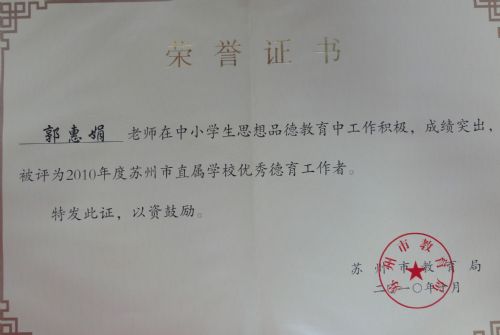 荣誉证书
郭惠娟 老师在中小学生思想品德教育中工作积极，成绩突出，
被评为2010年度苏州市直属学校优秀德育工作者。
特发此证，以资鼓励。
苏州市教育局
二〇一〇年 月
苏州市教育局